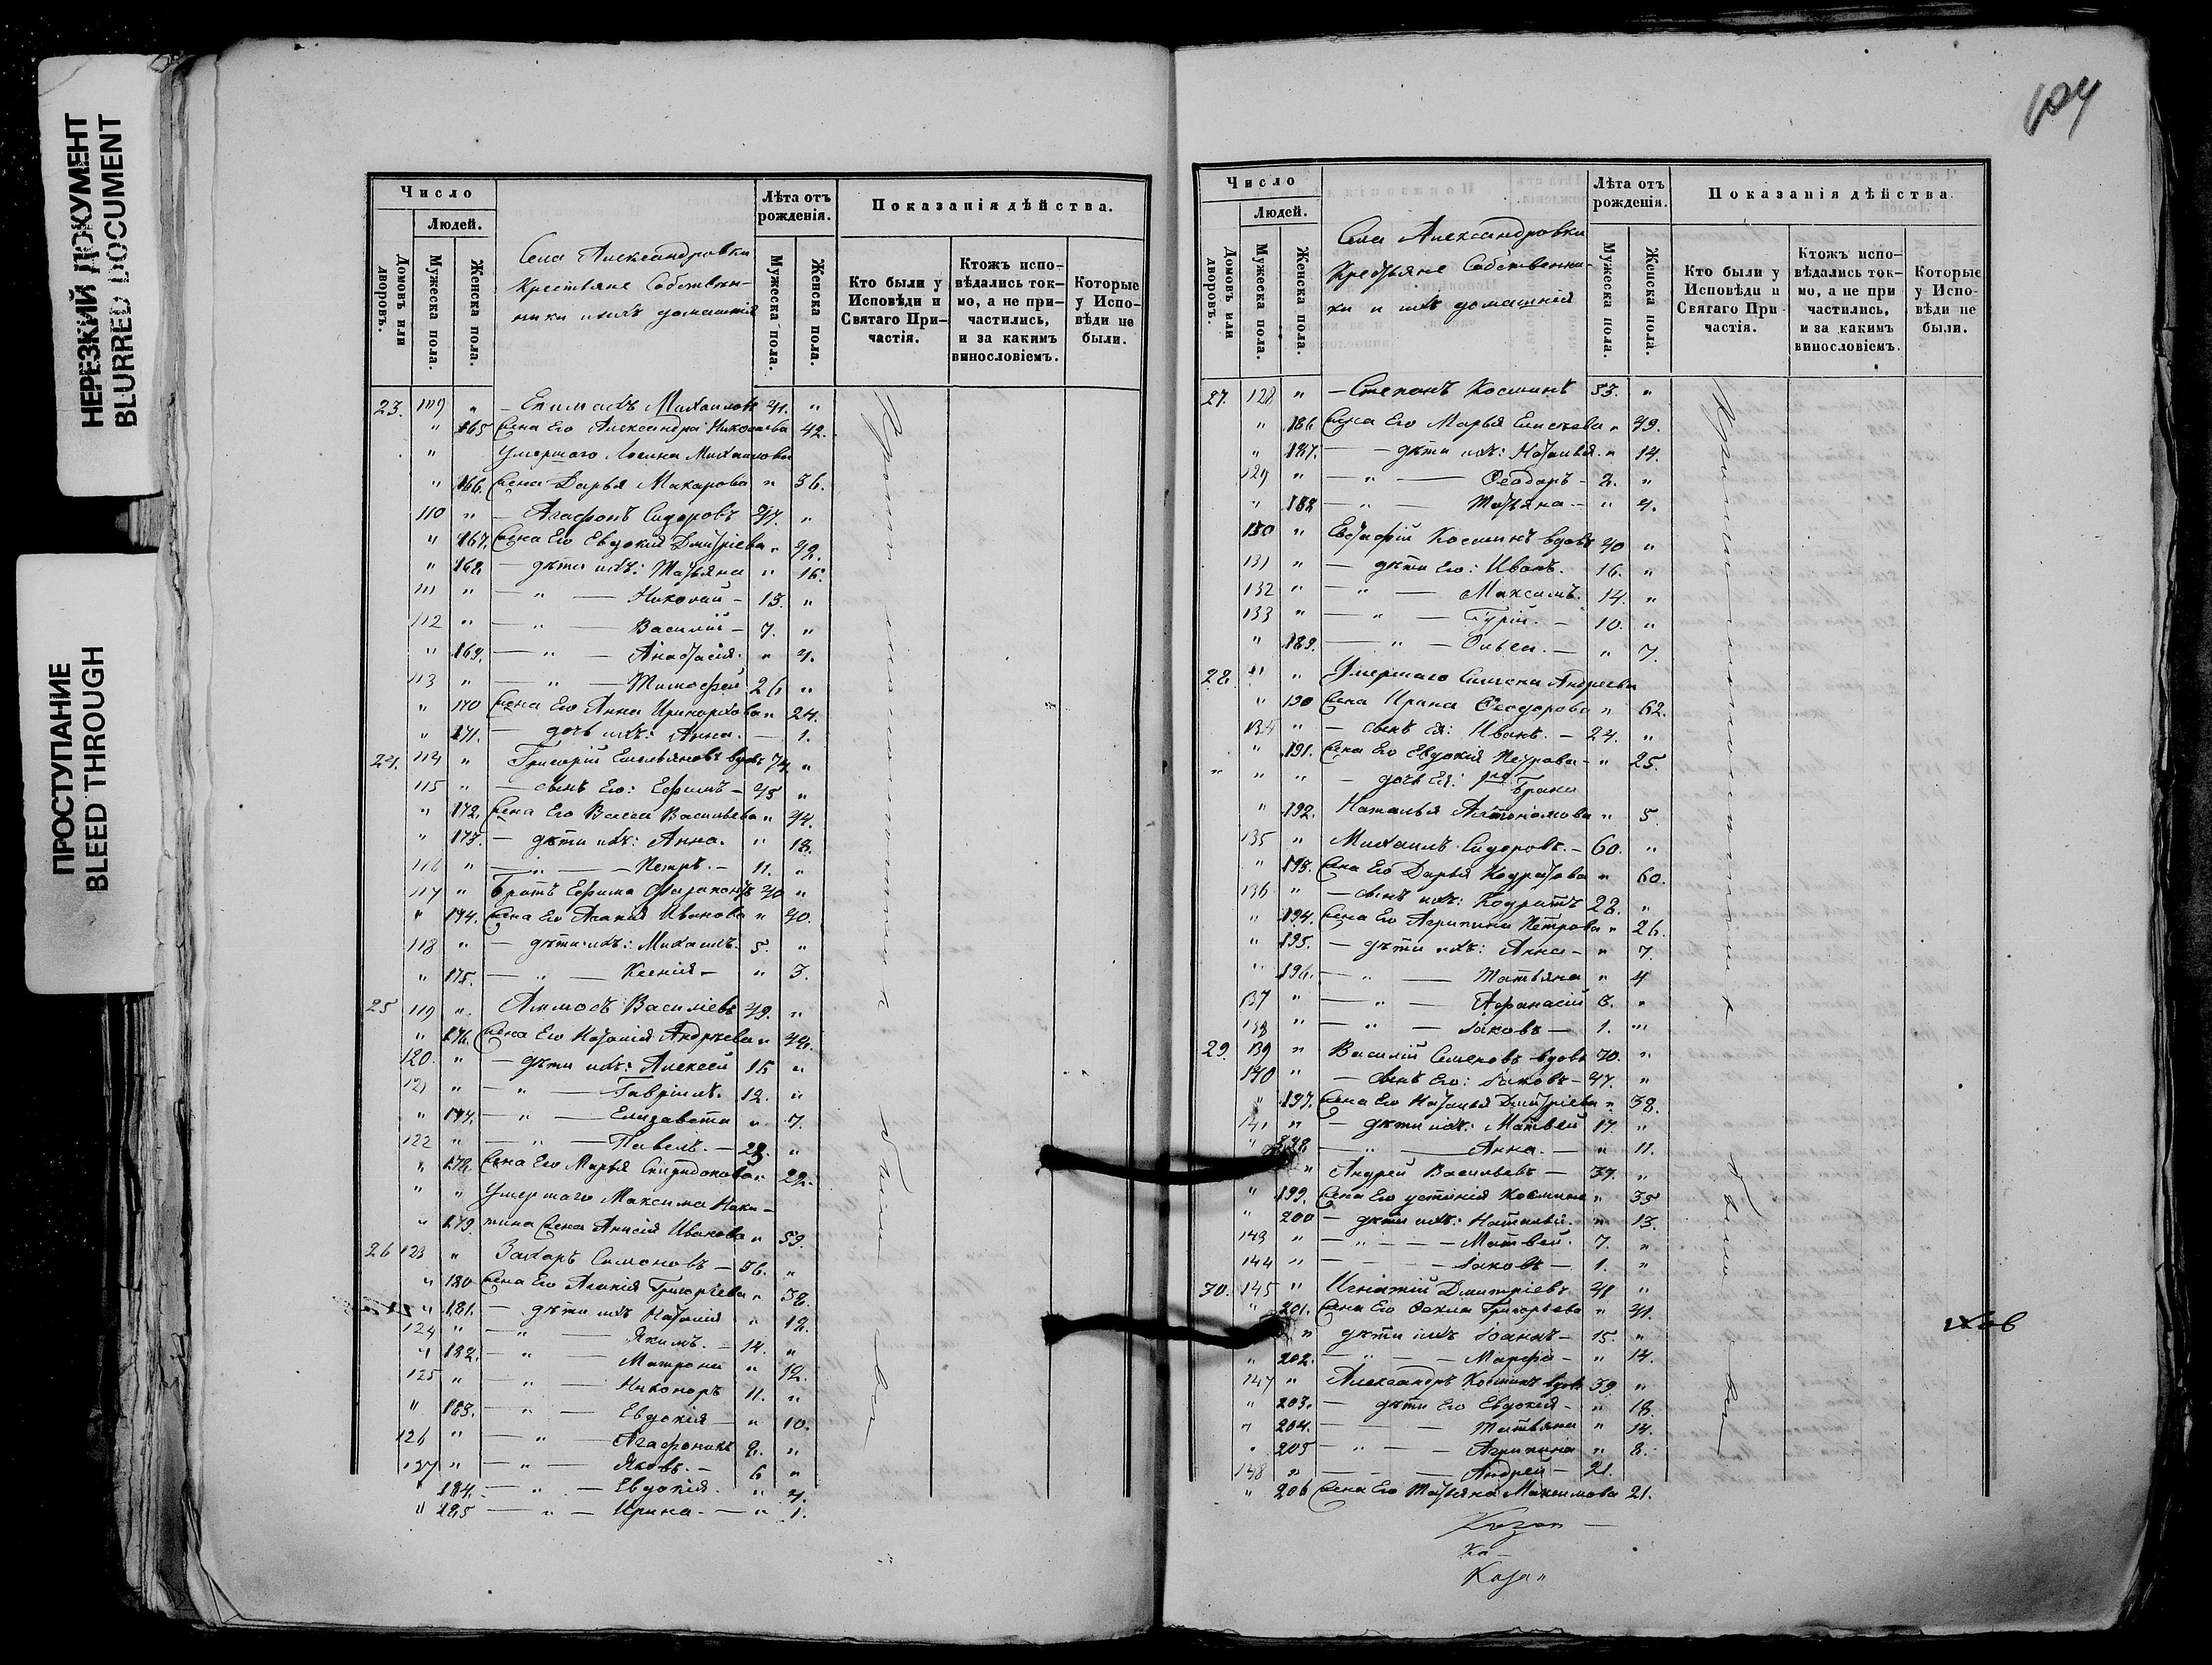 НЕРЕЗКИЙ ДОКУМЕНТ
BLURRED DOCUMENT
ПРОСТУПАНИЕ
BLEED THROUGH
Число
Людей.
Домовъ или дворовъ.
Мужеска пола.
Женска пола.
Села Александровки
Крестьяне Собствен-
ники и ихъ домашнія
Лѣта отъ рожденія.
Мужеска пола.
Женска пола.
Показанія дѣйства.
Кто были у Исповѣди и Святаго При-частія.
Ктожъ испо-вѣдались ток-мо, а не при-частились, и за какимъ винословіемъ.
Которые у Испо-вѣди не были.
23. 109 " - Михаиловъ 41. "
" 165 Жена Его Александра Николаева " 42.
" Умершаго Михаилова
" 166. Жена Дарья Макарова " 36.
110 " - Агафонъ Сидоровъ 47. "
" 167. Жена Его Евдокия Дмитріева " 42.
" 168. - дѣти ихъ: Татьяна " 16.
111 " — " — Николай - 13. "
112 " — " — Василій - 7. "
" 169. — " — Анастасія. " 4.
113 " — " — Тимофей 26 "
" 170 Жена Его Анна " 24.
" 171. — дочь ихъ: Анна. — 1.
24. 114 " Григорій Емельяновъ вдовъ 74. "
115 " — сынъ Его: Ефимъ - 45 "
" 172. Жена Его Васильева " 44.
" 173. — дѣти ихъ: Анна. " 18.
116 " — " — Петръ. - 11. "
117 " Братъ Ефима 40 "
" 174. Жена Его Агапія Иванова " 40.
118 " — дѣти ихъ: Михаилъ. 5. "
" 175. — " — Ксенія - " 3.
25 119 " Аммосъ Василіевъ 49. "
" 176. Жена Его Наталія Андреева " 44.
120. " — дѣти ихъ: Алексей 15 "
121 " — " — Гавріилъ. 12. "
" 177. — " — Елизавета " 7.
122 " — " — Павелъ. — 23. "
" 178. Жена Его Марья Спиридонова " 22.
" " Умершаго Максима Ники-
" 179. тина Жена Анисія Иванова " 59.
26 123 " Захаръ Симоновъ — 36. "
" 180 Жена Его Агапія Григоріева " 38.
" 181. — дѣти ихъ Наталія " 18.
124 " — " — Якимъ. — 14. "
" 182. — " — Матрона " 12.
125 " — " — Никоноръ 11. "
" 183. — " — Евдокія — " 10.
126 " — " — Агафоникъ 8. "
127 " — " — Яковъ. — 6 "
" 184. — " — Евдокія. " 4.
" 185 — " — Ирина. — " 1.
Были Вси
104
Число
Людей.
Домовъ или дворовъ.
Мужеска пола.
Женска пола.
Села Александровки
Крестьяне Собственни-
ки и ихъ домашнія
Лѣта отъ рожденія.
Мужеска пола.
Женска пола.
Показанія дѣйства.
Кто были у Исповѣди и Святаго При-частія.
Ктожъ испо-вѣдались ток-мо, а не при частились, и за какимъ винословіемъ.
Которые у Испо-вѣди не были.
27. 128 " - Степанъ Косминъ 53. "
" 186 Жена Его Марья Елисеева " 49.
" 187. — дѣти ихъ: Наталья. " 14.
129 " — " — Ѳеодоръ - 2. "
" 188 — " — Татьяна - " 4.
130 " Евстафій Косминъ вдовъ 40 "
131 " — дѣти Его: Иванъ. 16. "
132 " — " — Максимъ. 14. "
133 " — " — Гурій. — 10. "
" 189. — " — — " 7.
28. " " Умершаго Андреева
" 190 Жена Ирина Ѳеодорова " 62.
134 " — сынъ ея: Иванъ. — 24. "
" 191. Жена Его Евдокія Петрова - " 25.
" " " — дочь Ея: 1го Брака
" 192. Наталья Артомонова " 5.
135 " Михаилъ Сидоровъ. — 60. "
" 193. Жена Его Дарья Кодратова " 60.
136 " — сынъ ихъ: Кодратъ 28. "
" 194. Жена Его Агрипина Петрова " 26.
" 195. — дѣти ихъ: Анна — " 7.
" 196. — " — Татьяна " 4
137 " — " — Афанасій 3. "
138 " — " — Іаковъ — 1. "
29. 139 " Василій Семеновъ вдовъ 70. "
140 " — сынъ Его: Іаковъ - 47. "
" 197. Жена Его Наталья Дмитріева " 38.
141 " — дѣти ихъ: Матвей 17. "
" 198 — " — Анна. — " 11.
" Андрей Васильевъ — 37. "
" 199. Жена Его Устинія Космина " 35
" 200 — дѣти ихъ: Наталья. " 13.
143 " — " — — Матвей. 7. "
144 " — — — Іаковъ — 1. "
30. 145 " Игнатій Дмитріевъ 41 "
" 201. Жена Его Ѳекла Григорьева " 41.
" дѣти ихъ Іоаннъ — 15. "
" 202. — " — — Марфа — " 14.
147 " Александръ Косминъ вдовъ 39. "
" 203. — дѣти Его Евдокія — " 18.
" 204. — — — Татьяна " 14.
" 205 — " — — Агрипина " 8.
148 " — — — Андрей — 21.
" 206 Жена Его Татьяна Максимова 21.
Были Вси